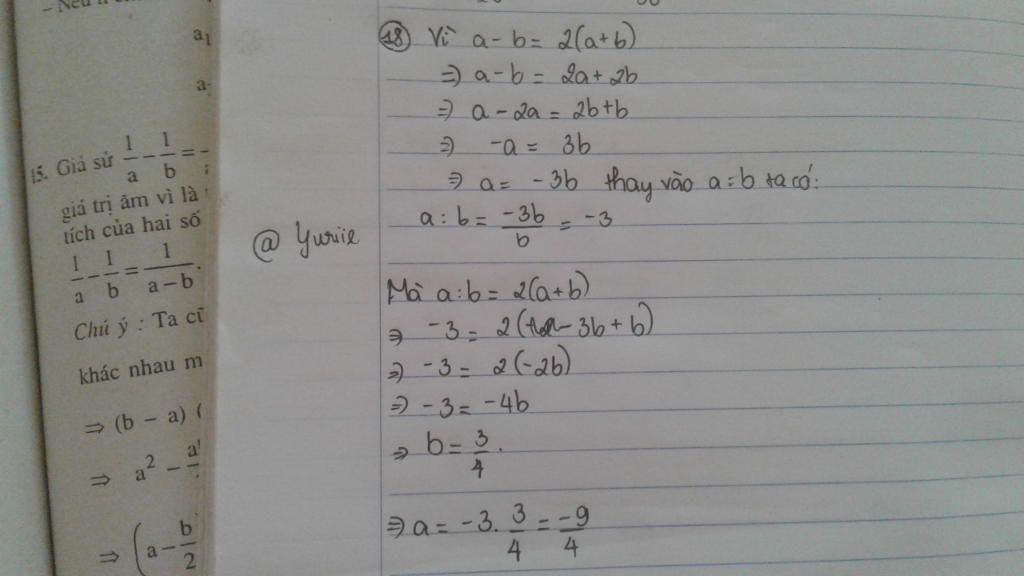 a₁
a
15. Giả sử 1/a - 1/b =
giá trị âm vì là
tích của hai số
1/a - 1/b = 1/(a-b).
Chú ý : Ta c
khác nhau m
⇒ (b - a) (
⇒ a² -
⇒ (a - b/2
@ Yuriie
18 Vì a-b = 2(a+b)
⇒ a-b = 2a+2b
⇒ a-2a = 2b+b
⇒ -a = 3b
⇒ a = -3b thay vào a:b ta có:
a:b = -3b/b = -3
Mà a:b = 2(a+b)
⇒ -3 = 2(-3b+b)
⇒ -3 = 2(-2b)
⇒ -3 = -4b
⇒ b = 3/4.
⇒ a = -3. 3/4 = -9/4